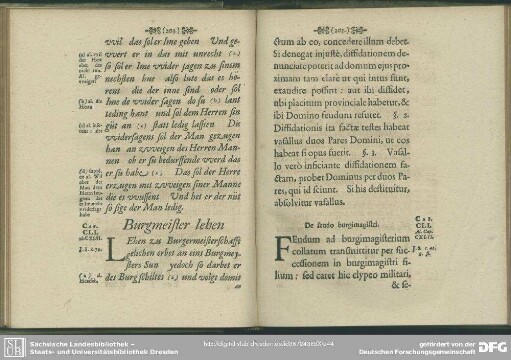 (202)
wil das sol er Ime geben Und ge-
wert er in das mit unrecht (a)
so sol er Ime wider sagen zu sinem
nechsten hus also lute das es ho-
rent die der inne sind oder sol
Ime de wider sagen do su (b) lant
teding hant und sol dem Herren sin
güt an (c) statt ledig lassen Die
widersagens sol der Man gezugen
han an zweigen des Herren Man-
nen ob er su bedurffende werd das
er su habe Das sol der Herre
erzugen mit zweigen siner Manne
die es wussent Und hat er der nüt
so sige der Man ledig.
CAP.
CLI.
Al. CXLIX.
Burgmeister lehen
LEhen zu Burgermeisterschafft
gelichen erbet an eins Burgmey-
sters Sun yedoch so darbet er
des Burgschiltes (a) und volge domit
(203)
ctum ab eo, concedere illum debet.
Si denegat injustè, diffidationem de-
nunciate poterit ad domum ejus pro-
ximam tam clarè ut qui intus sunt,
exaudire possint: aut ibi diffidet,
ubi placitum provinciale habetur, &
ibi Domino feudum refutet. §. 2.
Diffidationis ita factæ testes habeat
vasallus duos Pares Domini, ut eos
habeat si opus fuerit. §. 3. Vasal-
lo verò inficiante diffidationem fa-
ctam, probet Dominus per duos Pa-
res, qui id sciunt. Si his destituitur,
absolvitur vasallus.
De feudo burgimagistri.
CAP.
CLI.
Al. Cap.
CXLIX.
FEudum ad burgimagisterium
collatum transmittitur per suc-
cessionem in burgimagistri fi-
lium; sed caret hic clypeo militari,
& se-
Sächsische Landesbibliothek –
Staats- und Universitätsbibliothek Dresden
gefördert von der
Deutschen Forschungsgemeinschaft
DFG